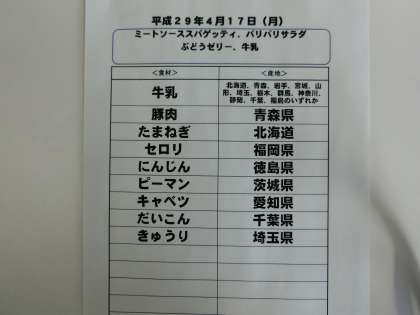 平成29年4月17日（月）
ミートソーススパゲッティ、パリパリサラダ
ぶどうゼリー、牛乳
＜食材＞ ＜産地＞
牛乳 北海道、青森、岩手、宮城、山
形、埼玉、栃木、群馬、神奈川、
静岡、千葉、福島のいずれか
豚肉 青森県
たまねぎ 北海道
セロリ 福岡県
にんじん 徳島県
ピーマン 茨城県
キャベツ 愛知県
だいこん 千葉県
きゅうり 埼玉県